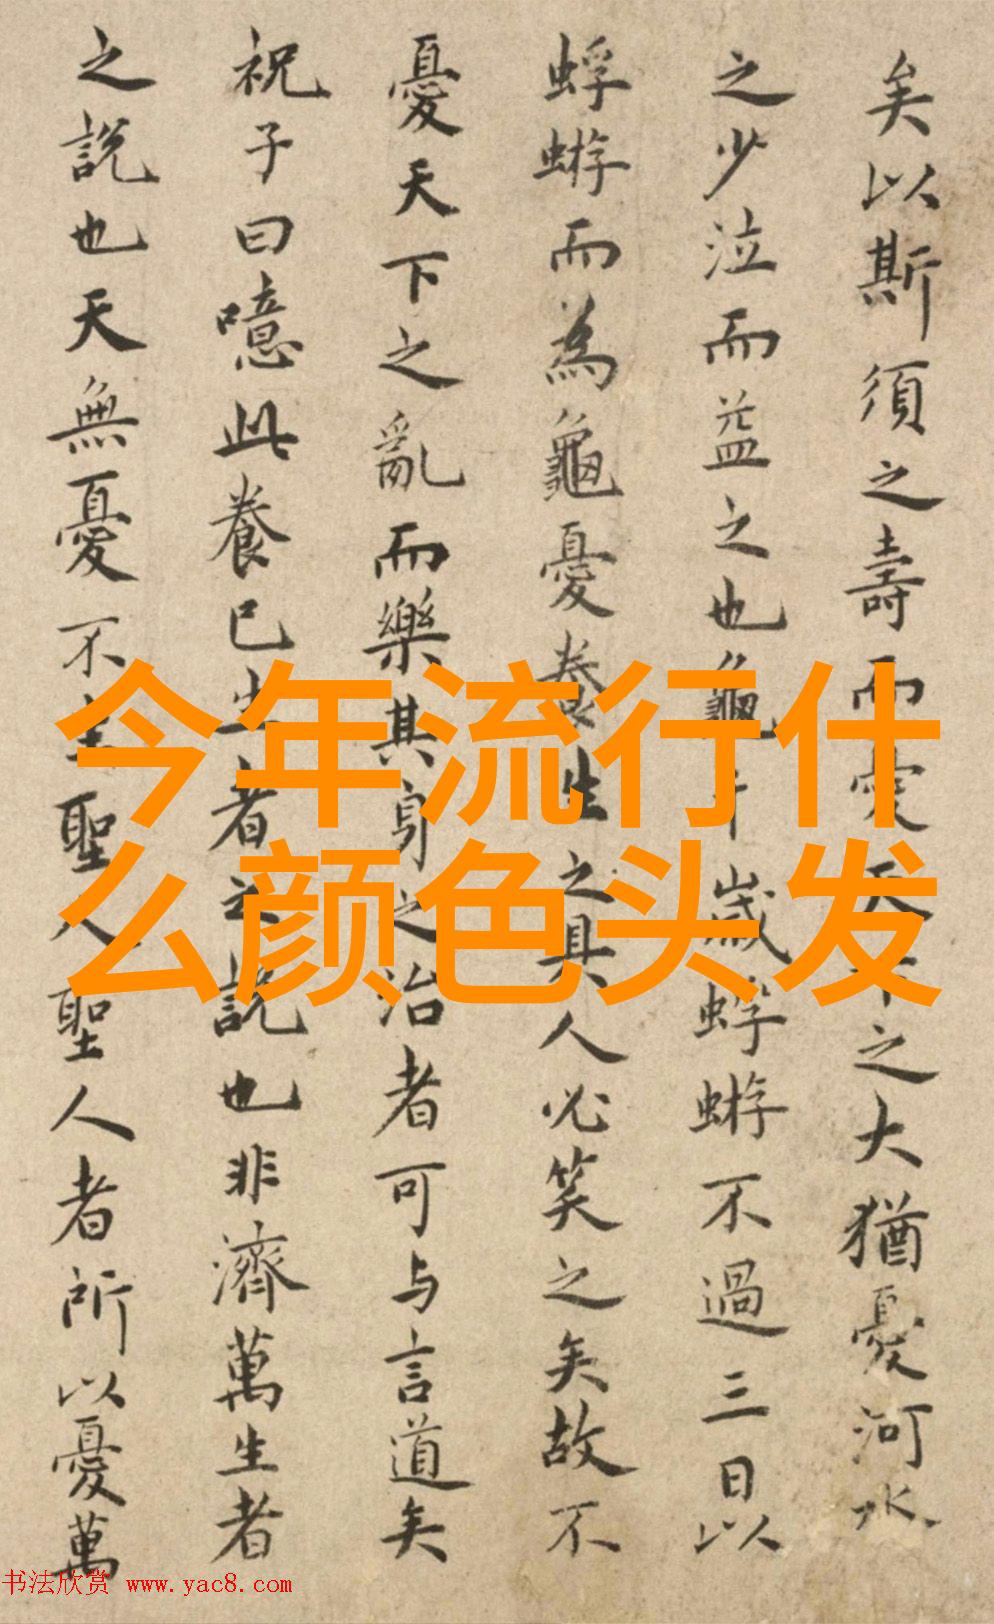 矣以斯須之壽而憂天下之大猶憂河水
之少泣而益之也龜千歲蜉蝣不過三日以
蜉蝣而為龜憂養生之具人必笑之矣故不
憂天下之亂而樂其身之治者可与言道矣
祝子曰噫此養己生者之説也非濟萬生者
之説也天無憂不生聖人聖人者所以憂萬
今年流行什
么颜色头发
书法欣赏 www.yac8.com